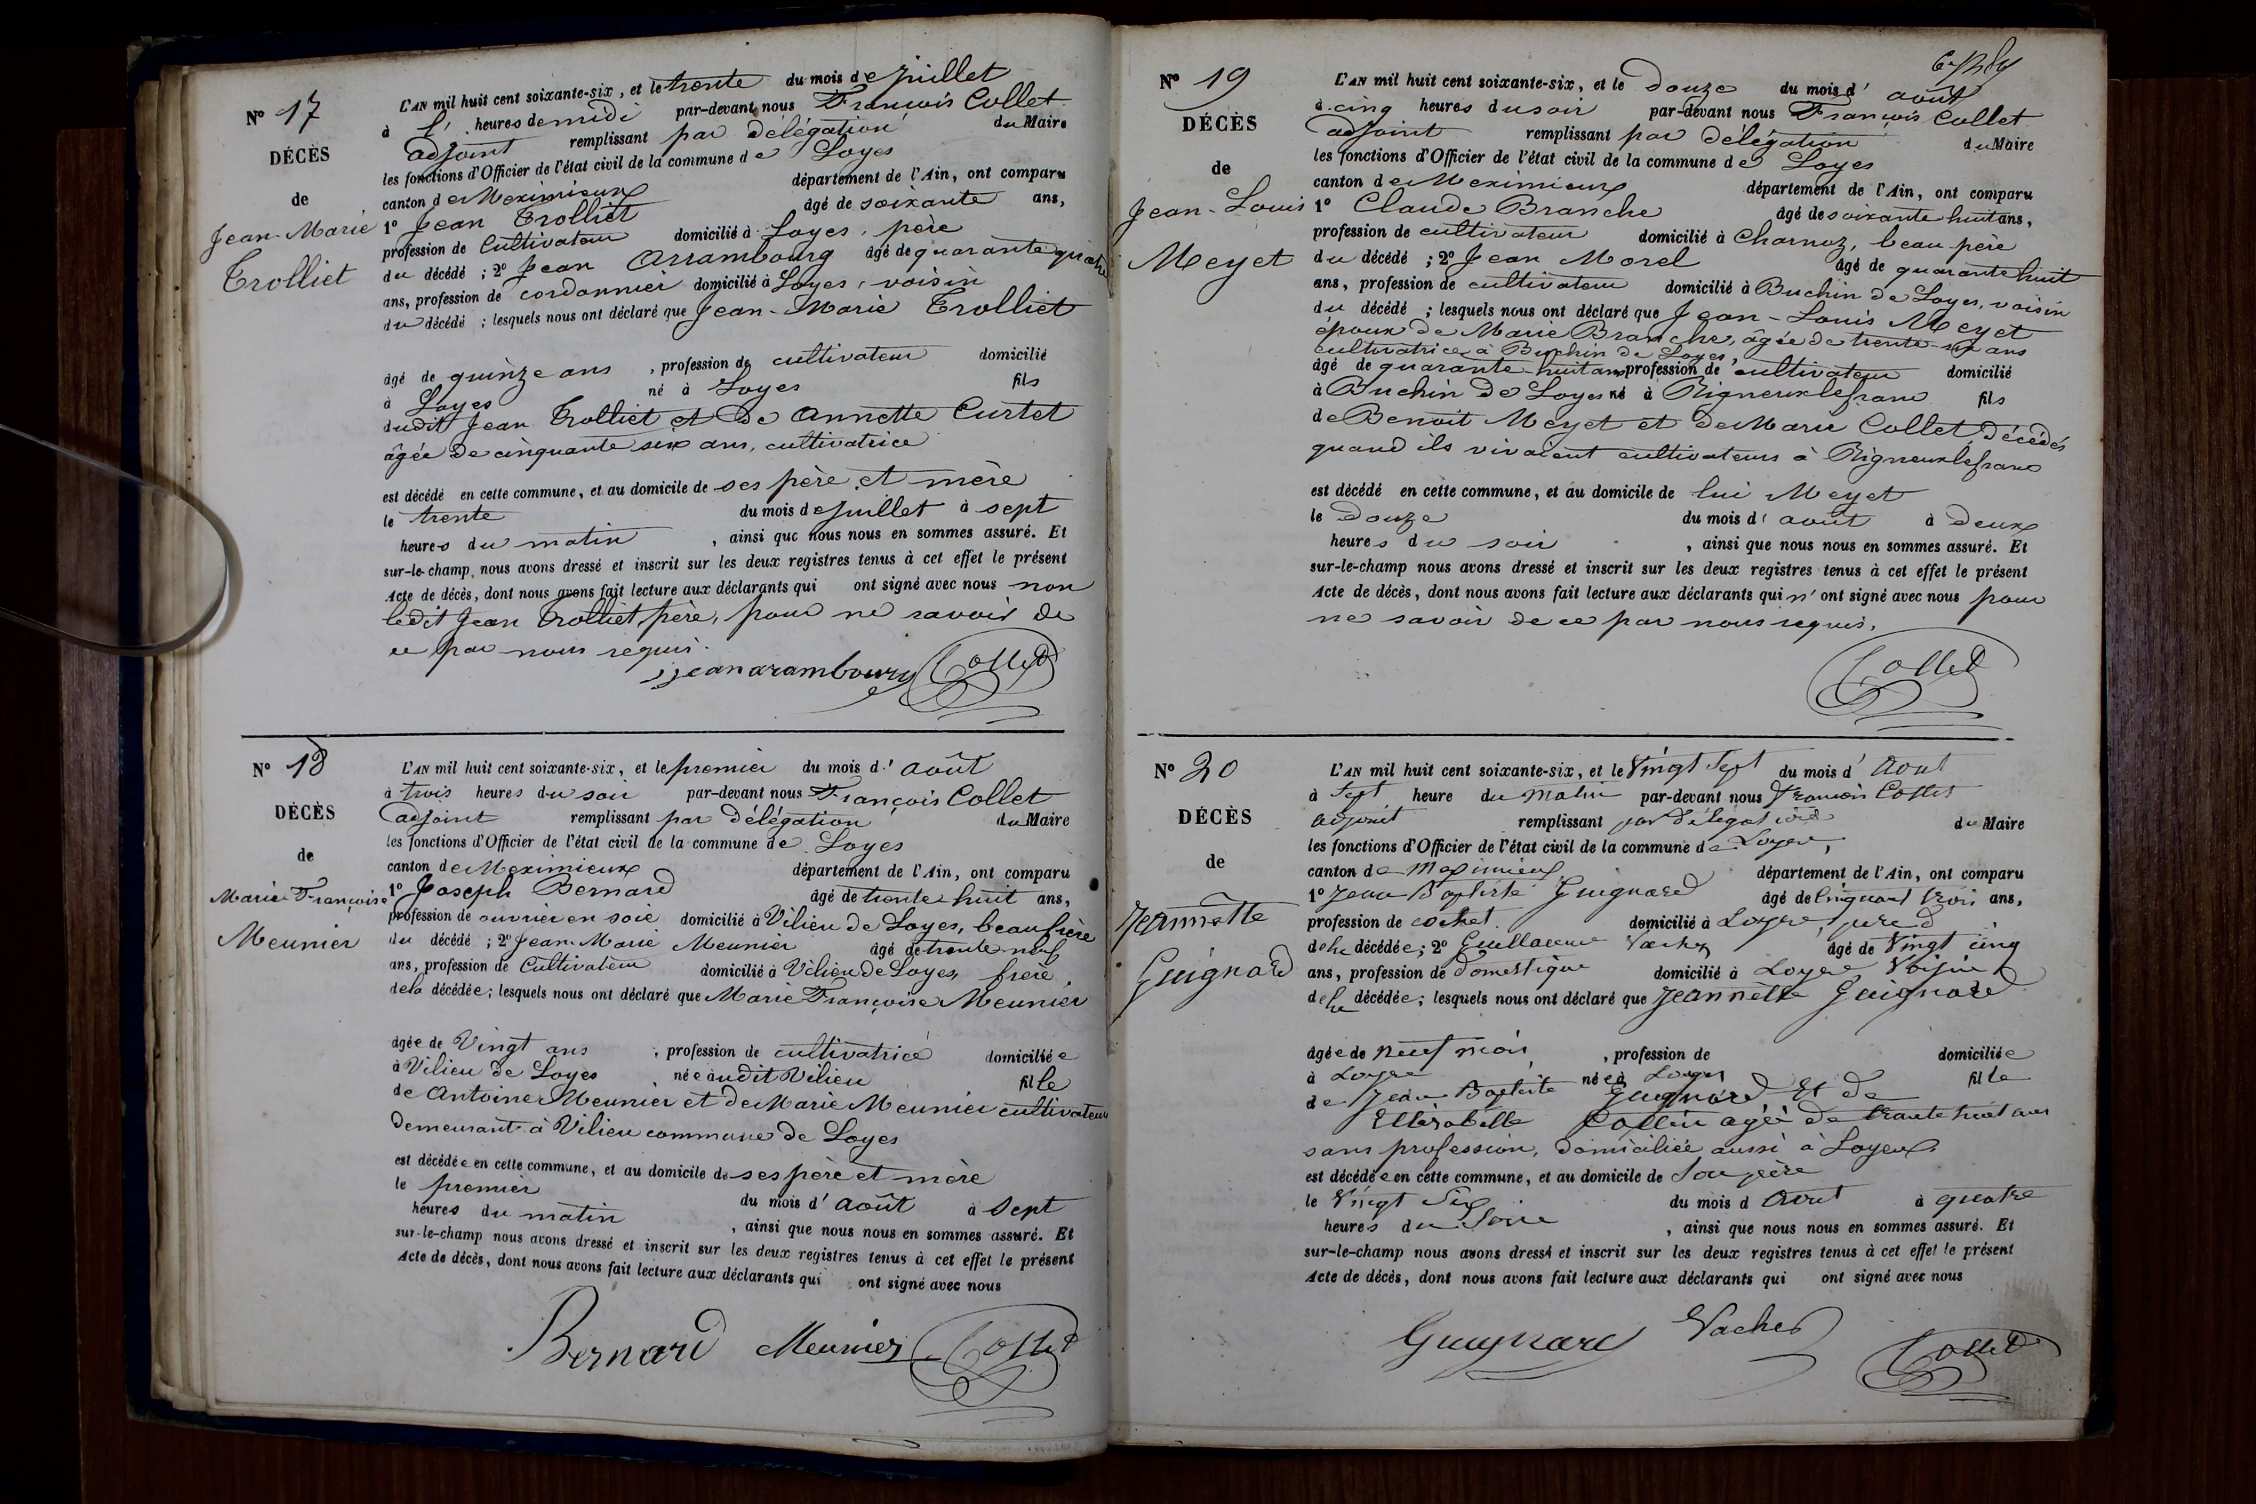 N° 17
DÉCÈS
de
Jean-Marie
Trolliet
L'AN mil huit cent soixante-six, et le trente du mois de juillet
à l' heures de midi par-devant nous François Collet
adjoint remplissant par délégation du Maire
les fonctions d'Officier de l'état civil de la commune de Loyes
canton de Meximieux département de l'Ain, ont comparu
1° Jean Trolliet âgé de soixante ans,
profession de cultivateur domicilié à Loyes, père
du décédé ; 2° Jean Arrambourg âgé de quarante quatre
ans, profession de cordonnier domicilié à Loyes, voisin
du décédé ; lesquels nous ont déclaré que Jean-Marie Trolliet
âgé de quinze ans, profession de cultivateur domicilié
à Loyes né à Loyes fils
dudit Jean Trolliet et de Annette Curtet
âgée de cinquante six ans, cultivatrice
est décédé en cette commune, et au domicile de ses père et mère
le trente du mois de juillet à sept
heures du matin, ainsi que nous nous en sommes assuré. Et
sur-le-champ, nous avons dressé et inscrit sur les deux registres tenus à cet effet le présent
Acte de décès, dont nous avons fait lecture aux déclarants qui ont signé avec nous non
ledit Jean Trolliet père, pour ne savoir de
ce par nous requis.
jean arambourg Collet
N° 18
DÉCÈS
de
Marie Françoise
Meunier
L'AN mil huit cent soixante-six, et le premier du mois d'août
à trois heures du soir par-devant nous François Collet
adjoint remplissant par délégation du Maire
les fonctions d'Officier de l'état civil de la commune de Loyes
canton de Meximieux département de l'Ain, ont comparu
1° Joseph Bernard âgé de trente huit ans,
profession de ouvrier en soie domicilié à Vilieu de Loyes, beaufrère
du décédé ; 2° Jean Marie Meunier âgé de trente neuf
ans, profession de Cultivateur domicilié à Vilieu de Loyes, frère
dela décédée ; lesquels nous ont déclaré que Marie Françoise Meunier
âgée de Vingt ans, profession de cultivatrice domiciliée
à Vilieu de Loyes née audit Vilieu fille
de Antoine Meunier et de Marie Meunier cultivateurs
demeurant à Vilieu commune de Loyes
est décédée en cette commune, et au domicile de ses père et mère
le premier du mois d'août à sept
heures du matin, ainsi que nous nous en sommes assuré. Et
sur-le-champ nous avons dressé et inscrit sur les deux registres tenus à cet effet le présent
Acte de décès, dont nous avons fait lecture aux déclarants qui ont signé avec nous
Bernard Meunier Collet
N° 19
DÉCÈS
de
Jean-Louis
Meyet
L'AN mil huit cent soixante-six, et le douze du mois d'août
à cinq heures du soir par-devant nous François Collet
adjoint remplissant par délégation du Maire
les fonctions d'Officier de l'état civil de la commune de Loyes
canton de Meximieux département de l'Ain, ont comparu
1° Claude Branche âgé de soixante huit ans,
profession de cultivateur domicilié à Charnoz, beau-père
du décédé ; 2° Jean Morel âgé de quarante huit
ans, profession de cultivateur domicilié à Buchin de Loyes, voisin
du décédé ; lesquels nous ont déclaré que Jean-Louis Meyet
époux de Marie Branche, âgée de trente-six ans
cultivatrice à Buchin de Loyes,
âgé de quarante huit ans profession de cultivateur domicilié
à Buchin de Loyes né à Rigneux le franc fils
de Benoit Meyet et de Marie Collet, décédés
quand ils vivaient cultivateurs à Rigneux le franc
est décédé en cette commune, et au domicile de lui Meyet
le douze du mois d'août à deux
heures du soir, ainsi que nous nous en sommes assuré. Et
sur-le-champ nous avons dressé et inscrit sur les deux registres tenus à cet effet le présent
Acte de décès, dont nous avons fait lecture aux déclarants qui n'ont signé avec nous pour
ne savoir de ce par nous requis.
Collet
N° 20
DÉCÈS
de
Jeannette
Guignard
L'AN mil huit cent soixante-six, et le Vingt Sept du mois d'Aout
à Sept heure du Matin par-devant nous François Collet
adjoint remplissant par délégation du Maire
les fonctions d'Officier de l'état civil de la commune de Loyes,
canton de Meximieux département de l'Ain, ont comparu
1° Jean Baptiste Guignard âgé de Cinquante trois ans,
profession de domicilié à Loyes, père
dela décédée ; 2° Guillaume Vacher âgé de Vingt cinq
ans, profession de domestique domicilié à Loyes Voisin
dela décédée ; lesquels nous ont déclaré que Jeannette Guignard
âgée de neuf mois, profession de domiciliée
à Loyes née à Loyes fille
de Jean Baptiste Guignard Et de
Collin agée de trente huit ans
sans profession, domiciliée aussi à Loyes
est décédée en cette commune, et au domicile de Son père
le Vingt Six du mois d Aout à quatre
heures du Soir, ainsi que nous nous en sommes assuré. Et
sur-le-champ nous avons dressé et inscrit sur les deux registres tenus à cet effet le présent
Acte de décès, dont nous avons fait lecture aux déclarants qui ont signé avec nous
Guignard Vacher Collet